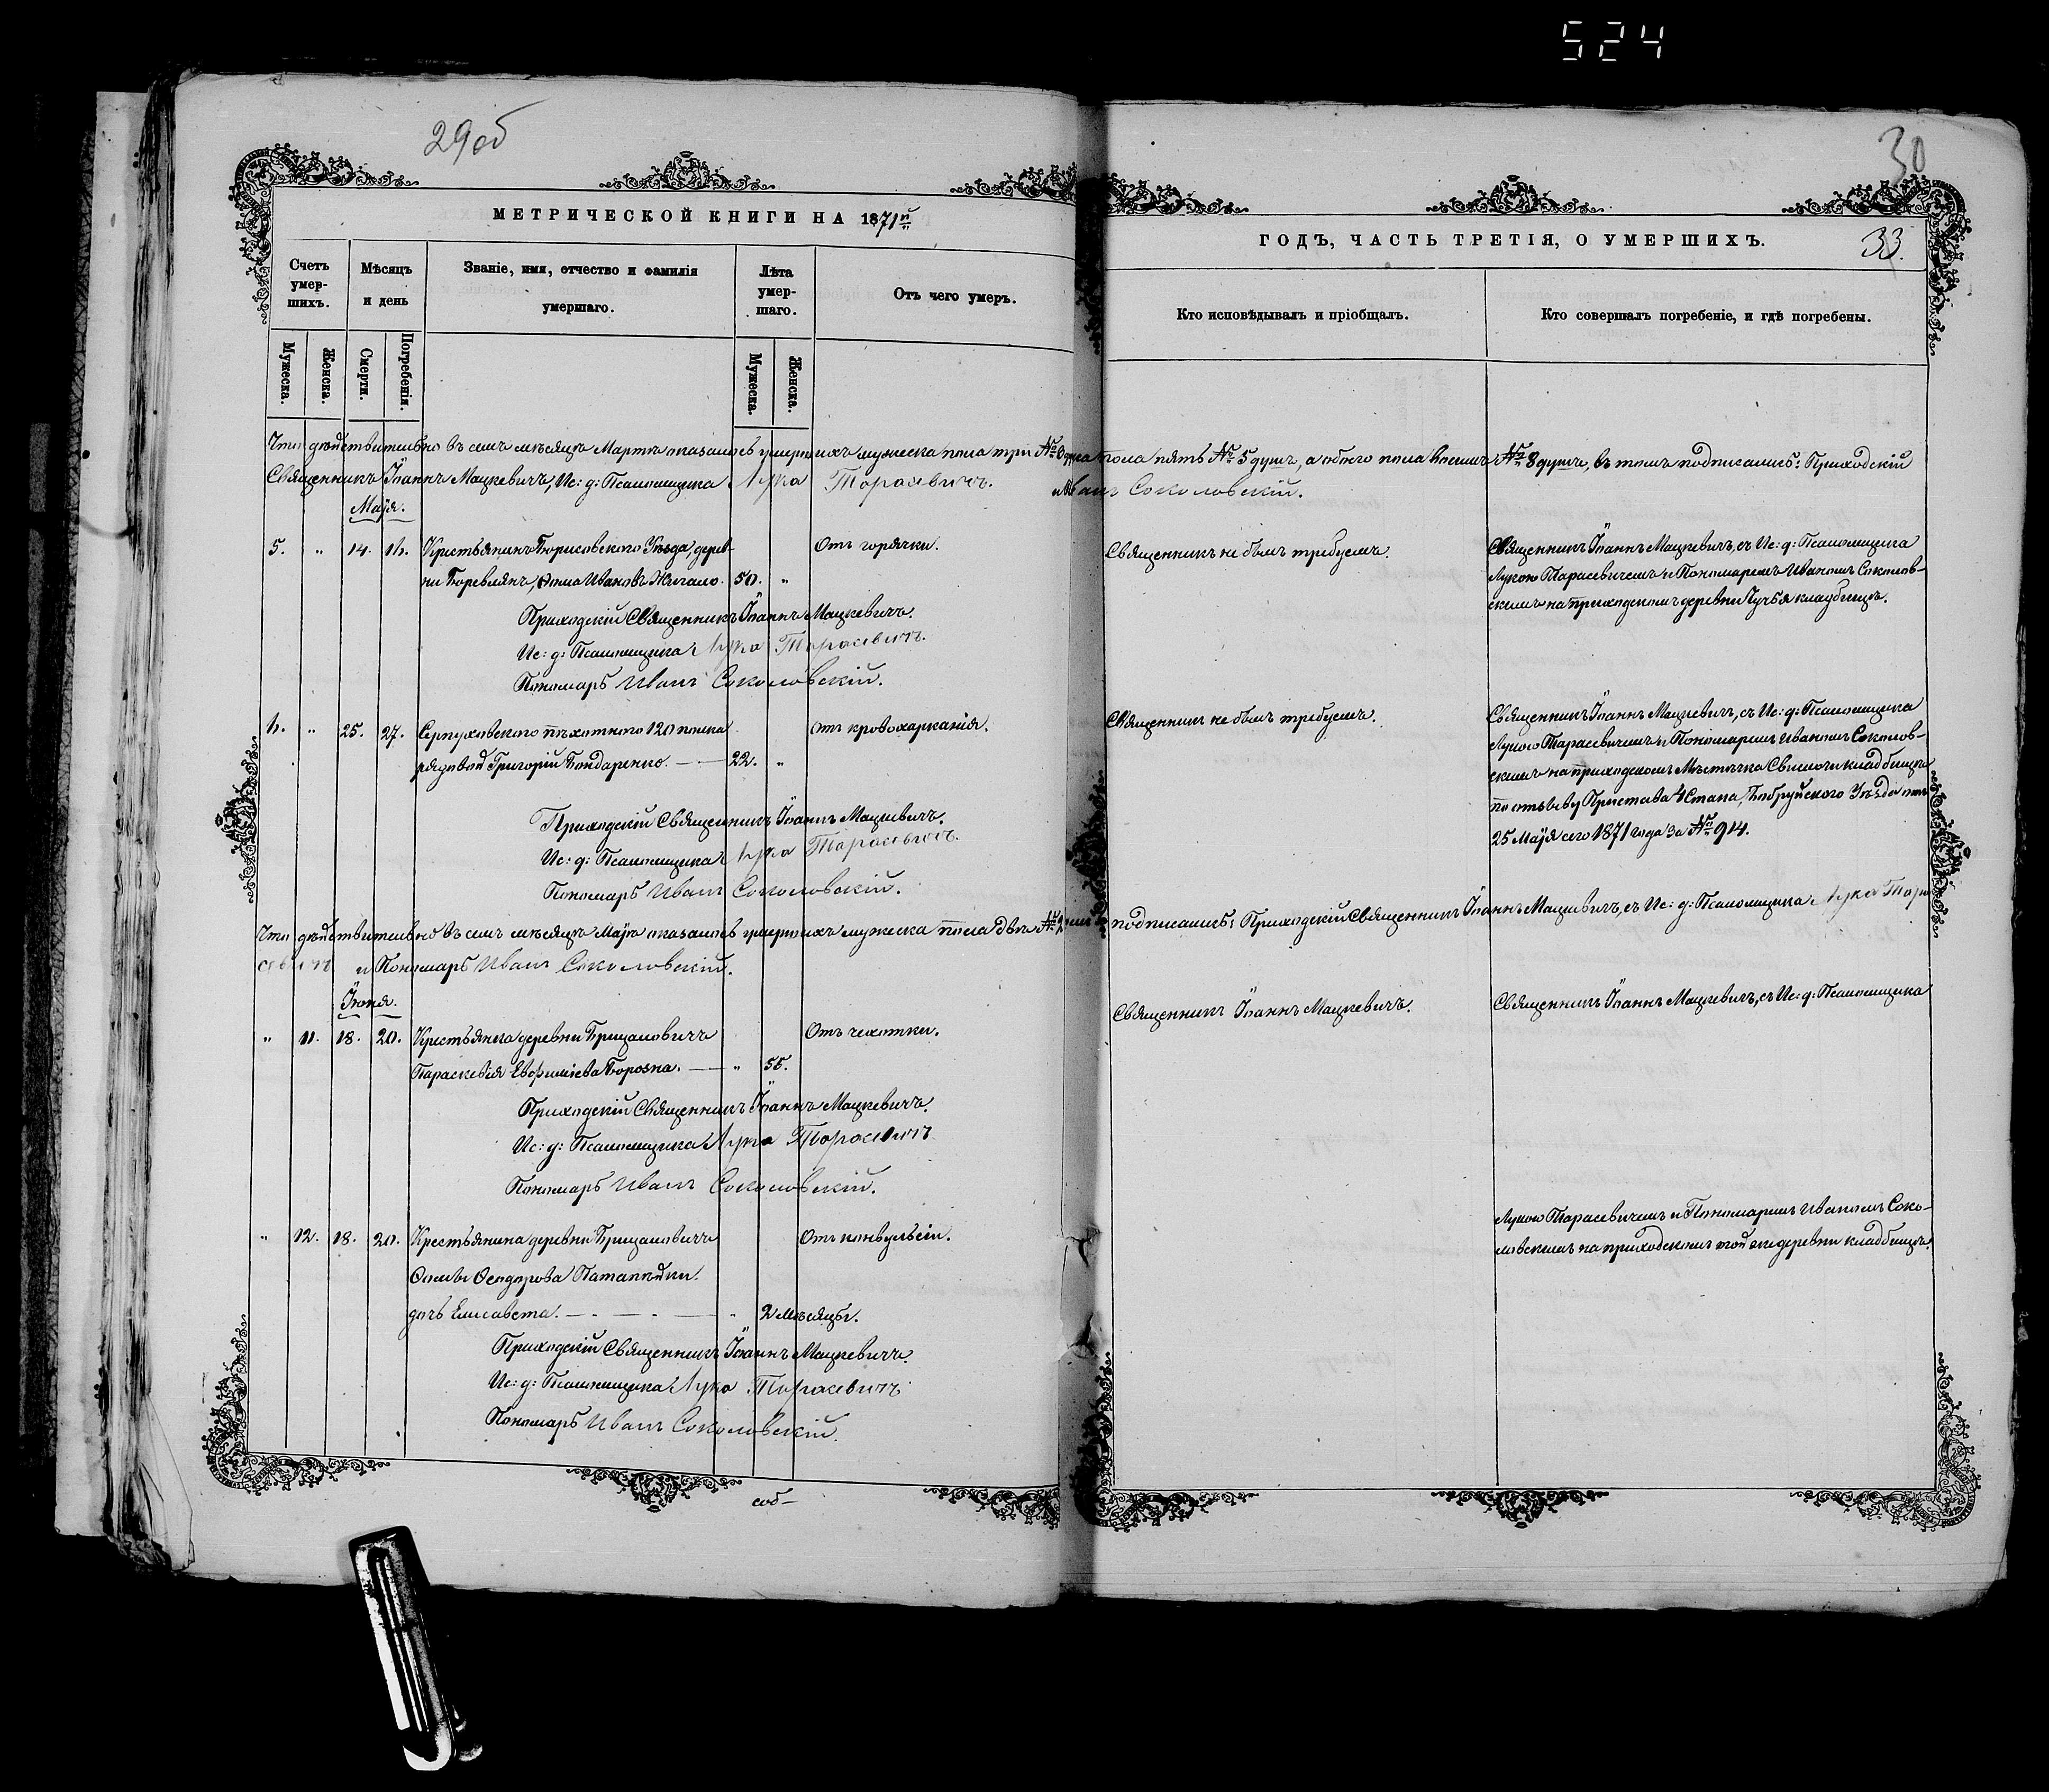 524
29об
30
МЕТРИЧЕСКОЙ КНИГИ НА 1871й
ГОДЪ, ЧАСТЬ ТРЕТІЯ, О УМЕРШИХЪ.
33.
Счетъ умер-шихъ.
Мѣсяцъ и день
Званіе, имя, отчество и фамилія умершаго.
Лѣта умер-шаго.
Отъ чего умеръ.
Кто исповѣдывалъ и пріобщалъ.
Кто совершалъ погребеніе, и гдѣ погребены.
Мужеска.
Женска.
Смерти.
Погребенія.
Мужеска.
Женска.
Что дѣйствительно въ семъ мѣсяцѣ Мартѣ оказалось умершихъ мужеска пола три №3 пола пять №5 душъ, а обоего пола восемь №8 душъ, въ томъ подписались: Приходскій
Священникъ Іоаннъ Мацкевичъ, Ис: д: Псаломщика Лука Тарасевичъ. Иванъ Соколовскій.
Маія.
5. " 14. 16. Крестьянинъ Борисовскаго Уѣзда дерев-
ни Боревлянъ, Ѳома Ивановъ 50. "
Отъ горячки.
Священникъ не былъ требуемъ.
Священникъ Іоаннъ Мацкевичъ, съ Ис: д: Псаломщика
Лукою Тарасевичемъ и Пономаремъ Иваномъ Соколов-
скимъ на приходскомъ деревни Лучья кладбищѣ.
Приходскій Священникъ Іоаннъ Мацкевичъ.
Ис: д: Псаломщика Лука Тарасевичъ.
Пономарь Иванъ Соколовскій.
6. " 25. 27. Серпуховскаго пѣхотнаго 120 полка
рядовой Григорій Бондаренко. — 22. "
Отъ кровохарканія.
Священникъ не былъ требуемъ.
Священникъ Іоаннъ Мацкевичъ, съ Ис: д: Псаломщика
Лукою Тарасевичемъ и Пономаремъ Иваномъ Соколов-
скимъ на приходскомъ Мѣстечка Свислочи кладбищѣ
по отзыву Пристава 4 Стана, Бобруйскаго Уѣзда отъ
25 Маія сего 1871 года за № 914.
Приходскій Священникъ Іоаннъ Мацкевичъ.
Ис: д: Псаломщика Лука Тарасевичъ.
Пономарь Иванъ Соколовскій.
Что дѣйствительно въ семъ мѣсяцѣ Маіѣ оказалось умершихъ мужеска пола двѣ №2 подписались: Приходскій Священникъ Іоаннъ Мацкевичъ, съ Ис: д: Псаломщика Лука Тара
севичъ и Пономарь Иванъ Соколовскій.
Іюня.
" 11. 18. 20. Крестьянка деревни Брицаловичъ
Параскевія Евфиміева Борозна. — " 55.
Отъ чехотки.
Священникъ Іоаннъ Мацкевичъ.
Священникъ Іоаннъ Мацкевичъ, съ Ис: д: Псаломщика
Приходскій Священникъ Іоаннъ Мацкевичъ.
Ис: д: Псаломщика Лука Тарасевичъ
Пономарь Иванъ Соколовскій.
" 12. 18. 20. Крестьянина деревни Брицаловичъ
Ѳомы Ѳеодорова
дочь Елисавета. — " 2 мѣсяцы.
Отъ конвульсіи.
Лукою Тарасевичемъ и Пономаремъ Иваномъ Соко-
ловскимъ на приходскомъ той же деревни кладбищѣ.
Приходскій Священникъ Іоаннъ Мацкевичъ.
Ис: д: Псаломщика Лука Тарасевичъ
Пономарь Иванъ Соколовскій.